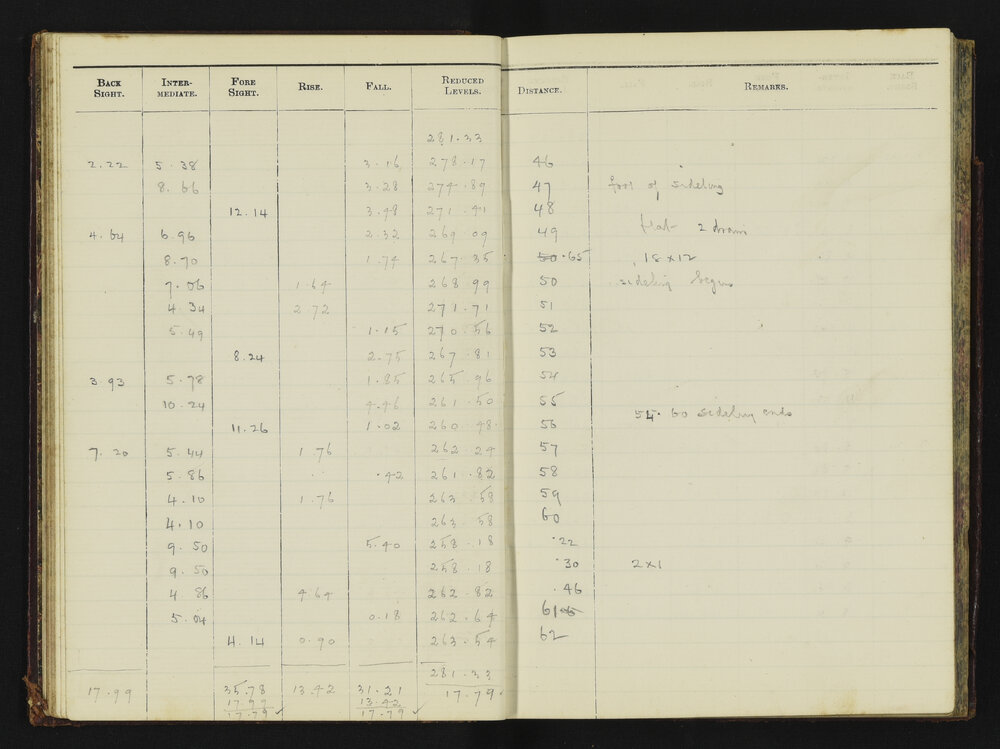 BACK SIGHT. INTER-MEDIATE. FORE SIGHT. RISE. FALL. REDUCED LEVELS. DISTANCE. REMARKS.
281.33
2.22 5.38 3.16 278.17 46
8.66 3.28 274.89 47 foot of sideling
12.14 3.48 271.41 48
4.64 6.96 2.32 269.09 49 flat 2 drains
8.70 1.74 267.35 50 .65 18 x 12
7.06 1.64 268.99 50 sideling begins
4.34 2.72 271.71 51
5.49 1.15 270.56 52
8.24 2.75 267.81 53
3.93 5.78 1.85 265.96 54
10.24 4.46 261.50 55 54.60 sideling ends
11.26 1.02 260.48 56
7.20 5.44 1.76 262.24 57
5.86 .42 261.82 58
4.10 1.76 263.58 59
4.10 263.58 60
9.50 5.40 258.18 .22
9.50 258.18 .30 2x1
4.86 4.64 262.82 .46
5.04 0.18 262.64 61
4.14 0.90 263.54 62
281.33
17.99 35.78 13.42 31.21 17.79
17.99 13.42
17.79 ✓ 17.79 ✓